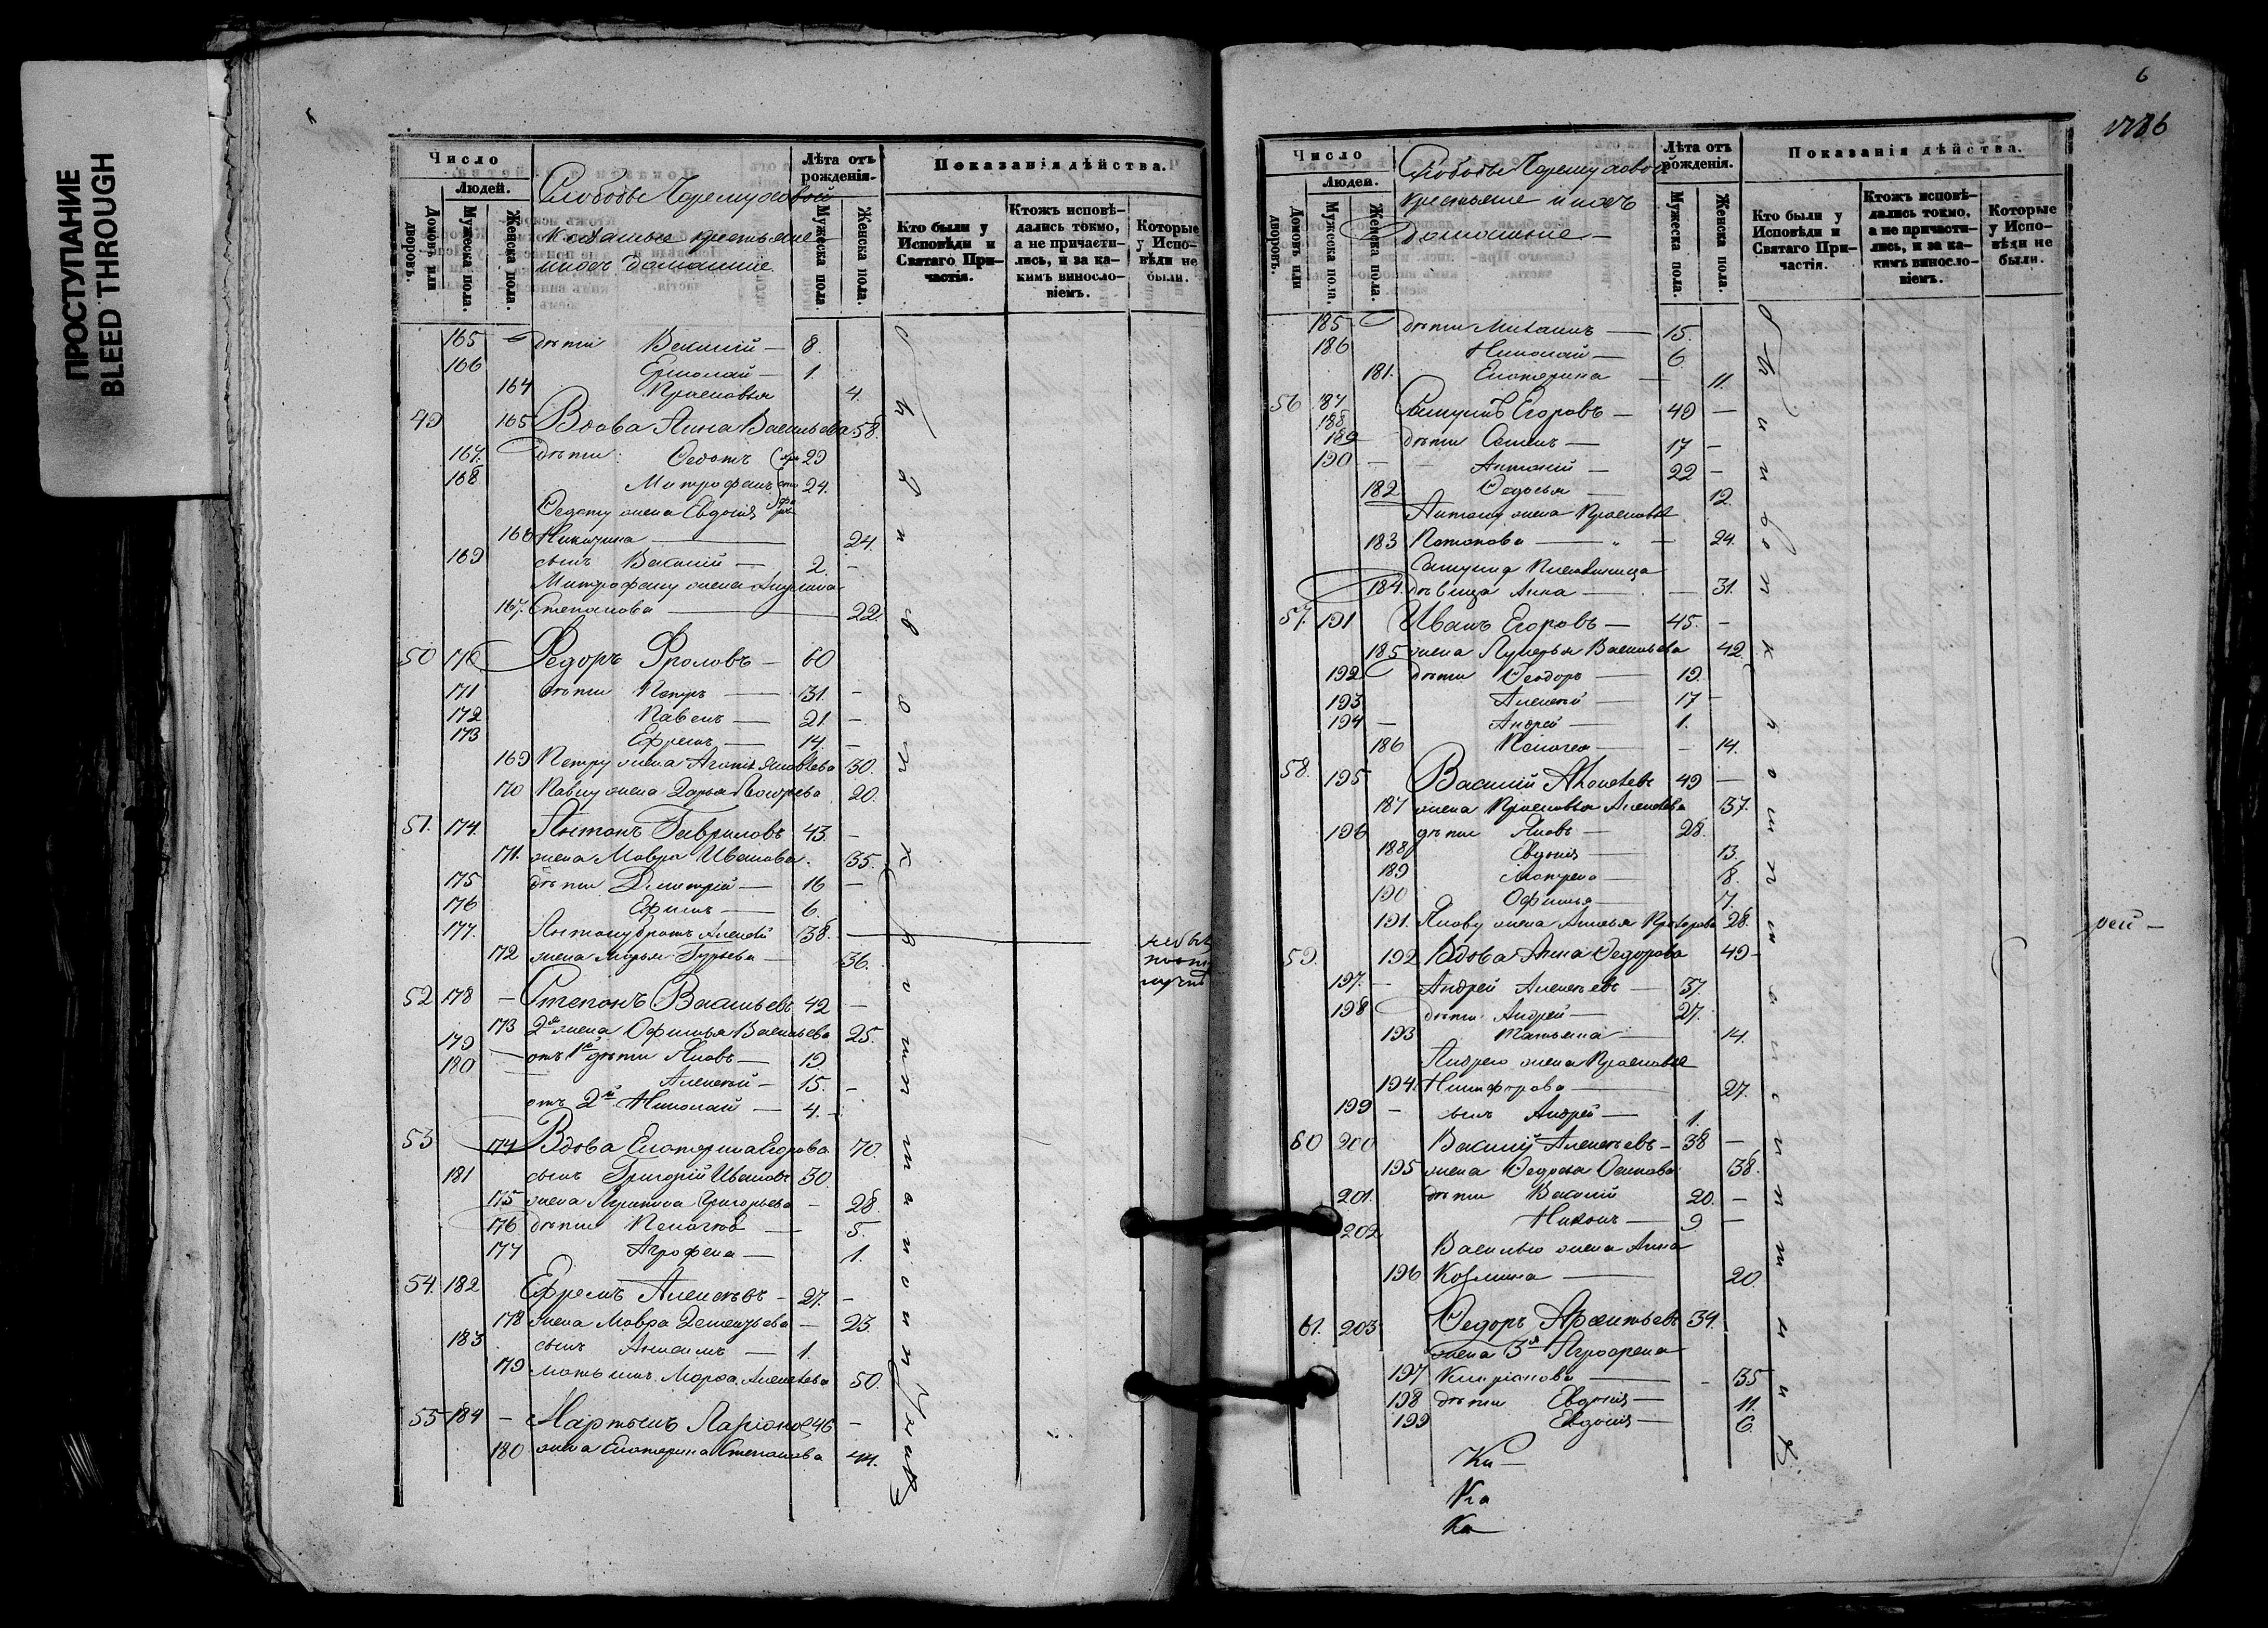 ПРОСТУПАНИЕ
BLEED THROUGH
Число
Людей.
Домовъ или дворовъ.
Мужеска пола.
Женска пола.
Слободы
крестьяне
и ихъ домашніе
Лѣта отъ рожденія.
Мужеска пола
Женска пола.
Показанія дѣйства.
Кто были у Исповѣди и Святаго Причастія.
Ктожъ исповѣдались токмо, а не причастились, и за какимъ винословіемъ.
Которые у Исповѣди не были.
165 дѣти Василій — 8.
166 Ермолай — 1.
164 Прасковья 4.
49 165 Вдова Анна Васильева 58.
167. дѣти: Ѳедотъ 29
168 Митрофанъ 24.
Ѳедоту жена Евдокія
166 Никитина — 24.
169 сынъ Василій — 2. —
Митрофану жена Акулина
167. Степанова — 22.
50 170 Ѳедоръ Фроловъ — 60
171 дѣти Петръ — 31. —
172 Павелъ — 21. —
173 Ефремъ — 14. —
169 Петру жена Яковлева 30.
170 Павлу жена Дарья 20.
51. 174. Антонъ Гавриловъ 43. —
171. жена Мавра Иванова. 35.
175 дѣти Димитрій — 16 —
176 Ефимъ — 6.
177. Антону братъ Алексѣй 38. —
172 жена Марья Гурьева — 36.
52 178 — Степанъ Васильевъ 42 —
173 2я жена Офимья Васильева 25.
179 — отъ 1й дѣти Яковъ — 19
180 — Алексѣй — 15. —
отъ 2й Николай — 4. —
53 174 Вдова Екатерина 70.
181 сынъ Григорій Ивановъ 30
175 жена Григорьева — 28.
176 дѣти Пелагея — 5.
177 Агрофена — 1.
54. 182 Ефремъ Алексѣевъ — 27. —
178 жена Мавра Дементьева — 23.
183 сынъ Анисимъ — 1.
179 мать ихъ Марѳа Алексѣева 50.
55 184 — Мартынъ Ларіоновъ 46 —
180 жена Екатерина Степанова 44.
6
Число
Людей.
Домовъ или дворовъ.
Мужеска пола.
Женска пола.
Слободы
крестьяне и ихъ
домашніе —
Лѣта отъ рожденія.
Мужеска пола.
Женска пола.
Показанія дѣйства.
Кто были у Исповѣди и Святаго Причастія.
Ктожъ исповѣдались токмо, а не причастились, и за какимъ винословіемъ.
Которые у Исповѣди не были.
185 дѣти Михаилъ — 15.
186 Николай — 6.
181. Екатерина — 11.
56 187 Егоровъ — 49 —
188
189 дѣти Семенъ — 17 —
190 — Антоній — 22 —
182 Ѳедосья — 12.
Антону жена Прасковья
183 Потапова — 24.
184. дѣвица Анна — 31.
57. 191 Иванъ Егоровъ — 45. —
185 жена Лукерья Васильева 42.
192 дѣти Ѳеодоръ — 19.
193 Алексѣй — 17 —
194 — Андрей — 1.
186 Пелагея — — 14.
58. 195 Василій 49 —
187 жена Прасковья Алексѣева 37.
196 дѣти Яковъ — 28.
188 Евдокія — 13.
189 Матрена — 8.
190 Офимья — 7.
191. Якову жена Прохорова 28.
59. 192 Вдова Анна Ѳедорова 49 —
197. — Андрей Алексѣевъ — 37.
198 дѣти Андрей — 27.
193 Татьяна — 14.
Андрею жена Прасковья
194. Никифорова — 27.
199 — сынъ Андрей — 1.
60 200 Василій Алексѣевъ — 38 —
195 жена Ѳедосья Осипова 38.
201. дѣти Василій 20. —
202 Никонъ — 9 —
Василью жена Анна
196 Козмина — 20.
61. 203 Ѳедоръ 34.
жена 3я Агрофена
197 Кипріанова — 35
198 дѣти Евдокія — 11.
199 Евдокія — 6.